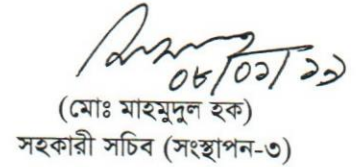 ০৮/০১/১৯
(মোঃ মাহমুদুল হক)
সহকারী সচিব (সংস্থাপন-৩)